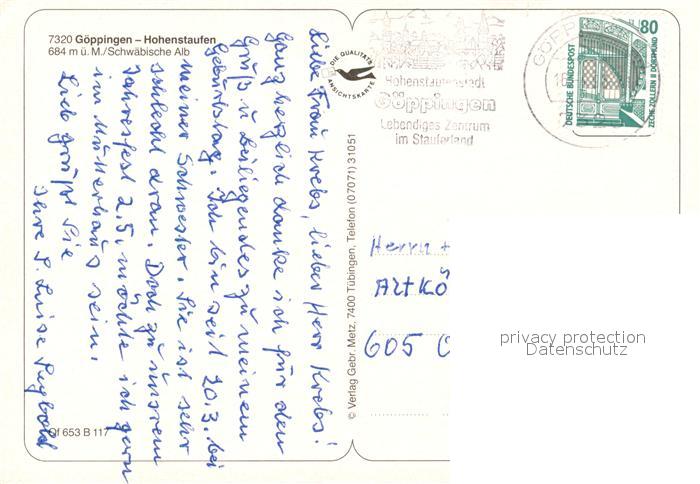 7320 Göppingen – Hohenstaufen
684 m ü. M./Schwäbische Alb
Liebe Frau Krebs, lieber Herr Krebs!
Ganz herzlich danke ich für den
Gruß u. Beiliegendes zu meinem
Geburtstag. Ich bin seit 20.3. bei
meiner Schwester. Sie ist sehr
schlecht dran. Doch zu unserem
Jahresfest 2.5. möchte ich gern
im Mutterhaus sein.
Lieb grüßt Sie
Ihre S. Luise
Of 653 B 117
DIE QUALITÄTS
ANSICHTSKARTE
© Verlag Gebr. Metz, 7400 Tübingen, Telefon (07071) 31051
Hohenstaufenstadt
Göppingen
Lebendiges Zentrum
im Stauferland
GÖPP
80
DEUTSCHE BUNDESPOST
ZECHE ZOLLERN II DORTMUND
Herrn +
Altkö
605 O
privacy protection
Datenschutz